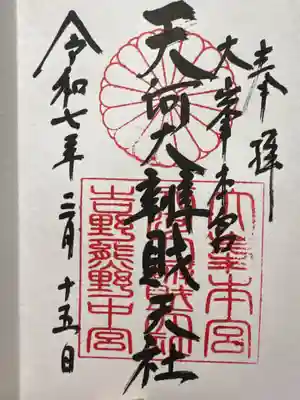 奉拝
大峯本宮
天河大辨財天社
令和七年三月十五日
大峯本宮
吉野熊野中宮